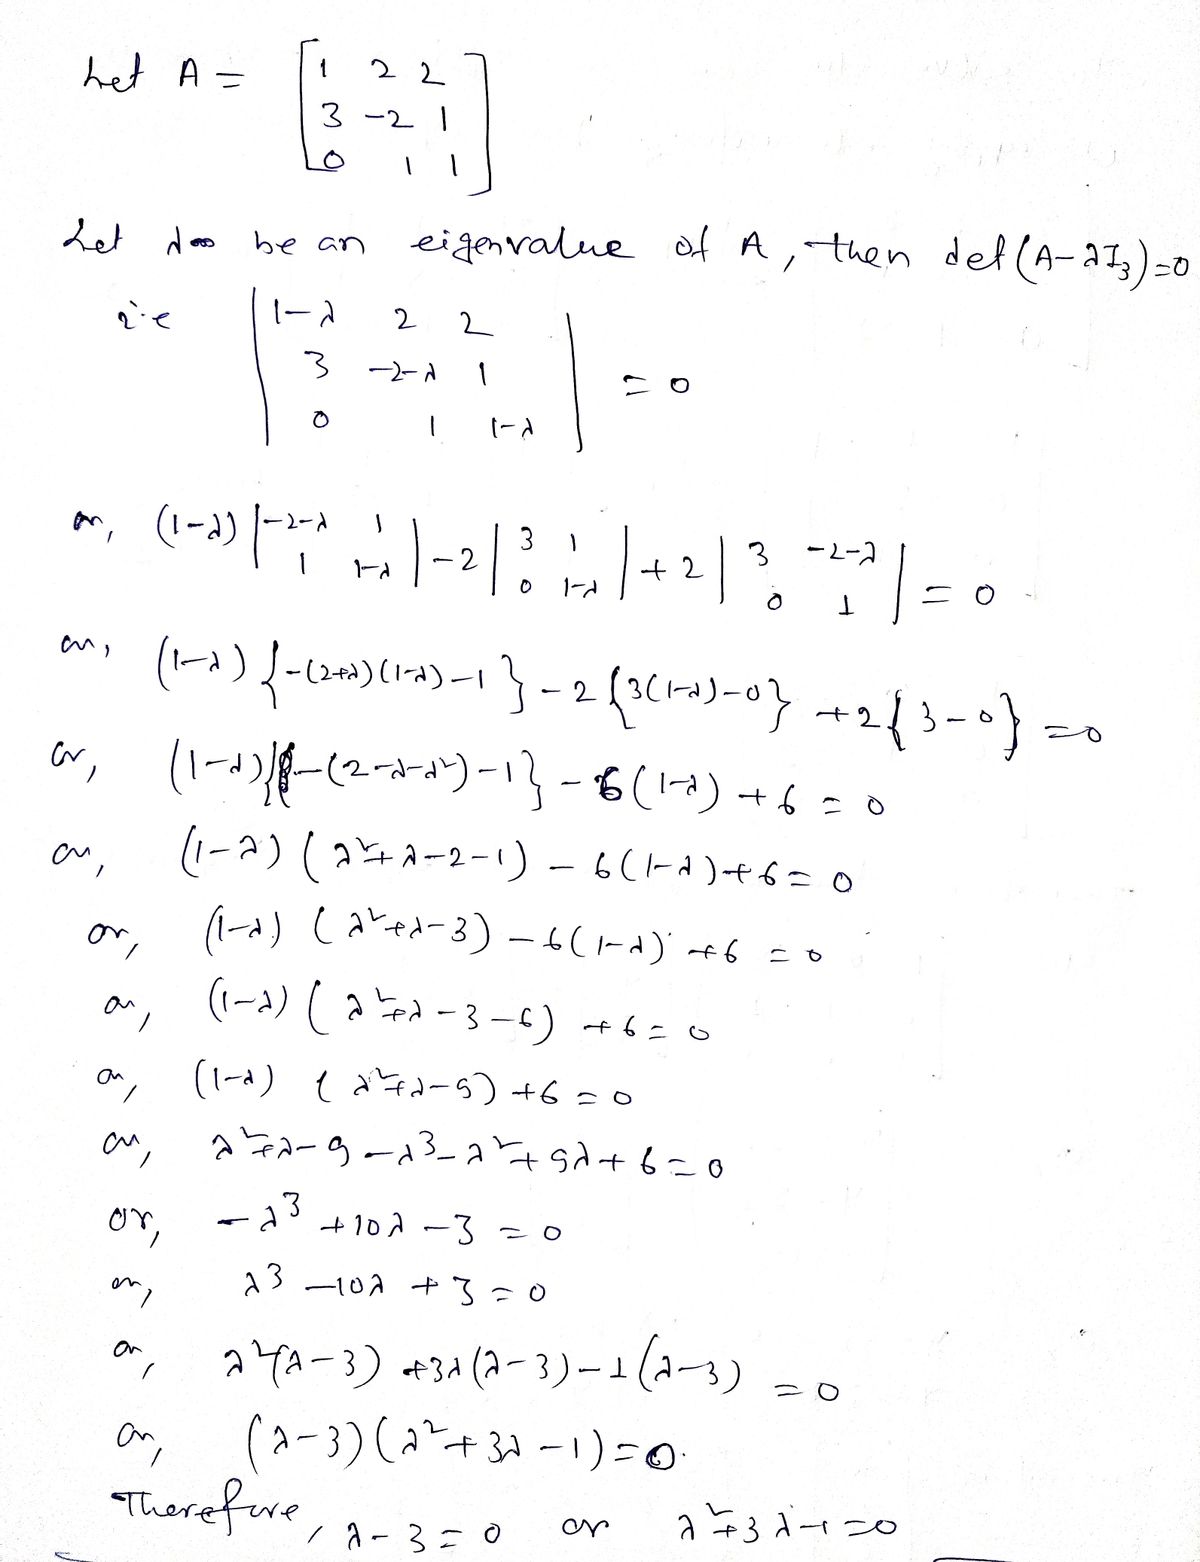 Let A = [ 1 2 2
3 -2 1
0 1 1 ]
Let λ be an eigenvalue of A, then det(A-λI₃)=0
i.e | 1-λ 2 2
3 -2-λ 1 | = 0
0 1 1-λ
or, (1-λ) | -2-λ 1 ; 1 1-λ | - 2 | 3 1 ; 0 1-λ | + 2 | 3 -2-λ ; 0 1 | = 0
or, (1-λ) {-(2+λ)(1-λ)-1} - 2 {3(1-λ)-0} + 2{3-0} = 0
or, (1-λ){-(2-λ-λ²)-1} - 6(1-λ) + 6 = 0
or, (1-λ) (λ²+λ-2-1) - 6(1-λ)+6 = 0
or, (1-λ) (λ²+λ-3) - 6(1-λ) +6 = 0
or, (1-λ) (λ²+λ-3-6) +6 = 0
or, (1-λ) (λ²+λ-9) +6 = 0
or, λ²+λ-9-λ³-λ²+9λ+6=0
or, -λ³ +10λ -3 = 0
or, λ³ -10λ + 3 = 0
or, λ²(λ-3) +3λ(λ-3)-1(λ-3) = 0
or, (λ-3)(λ²+3λ-1)=0.
Therefore, λ-3 = 0 or λ²+3λ-1=0